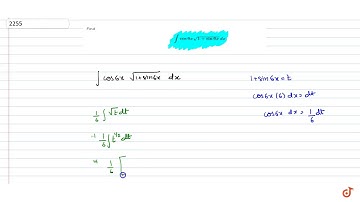 2255
Find
∫ cos6x √1+sin6x dx
∫ cos6x √1+sin6x dx
1+sin6x = t
cos6x (6) dx = dt
cos6x dx = 1/6 dt
1/6 ∫ √t dt
1/6 ∫ t^1/2 dt
1/6 [